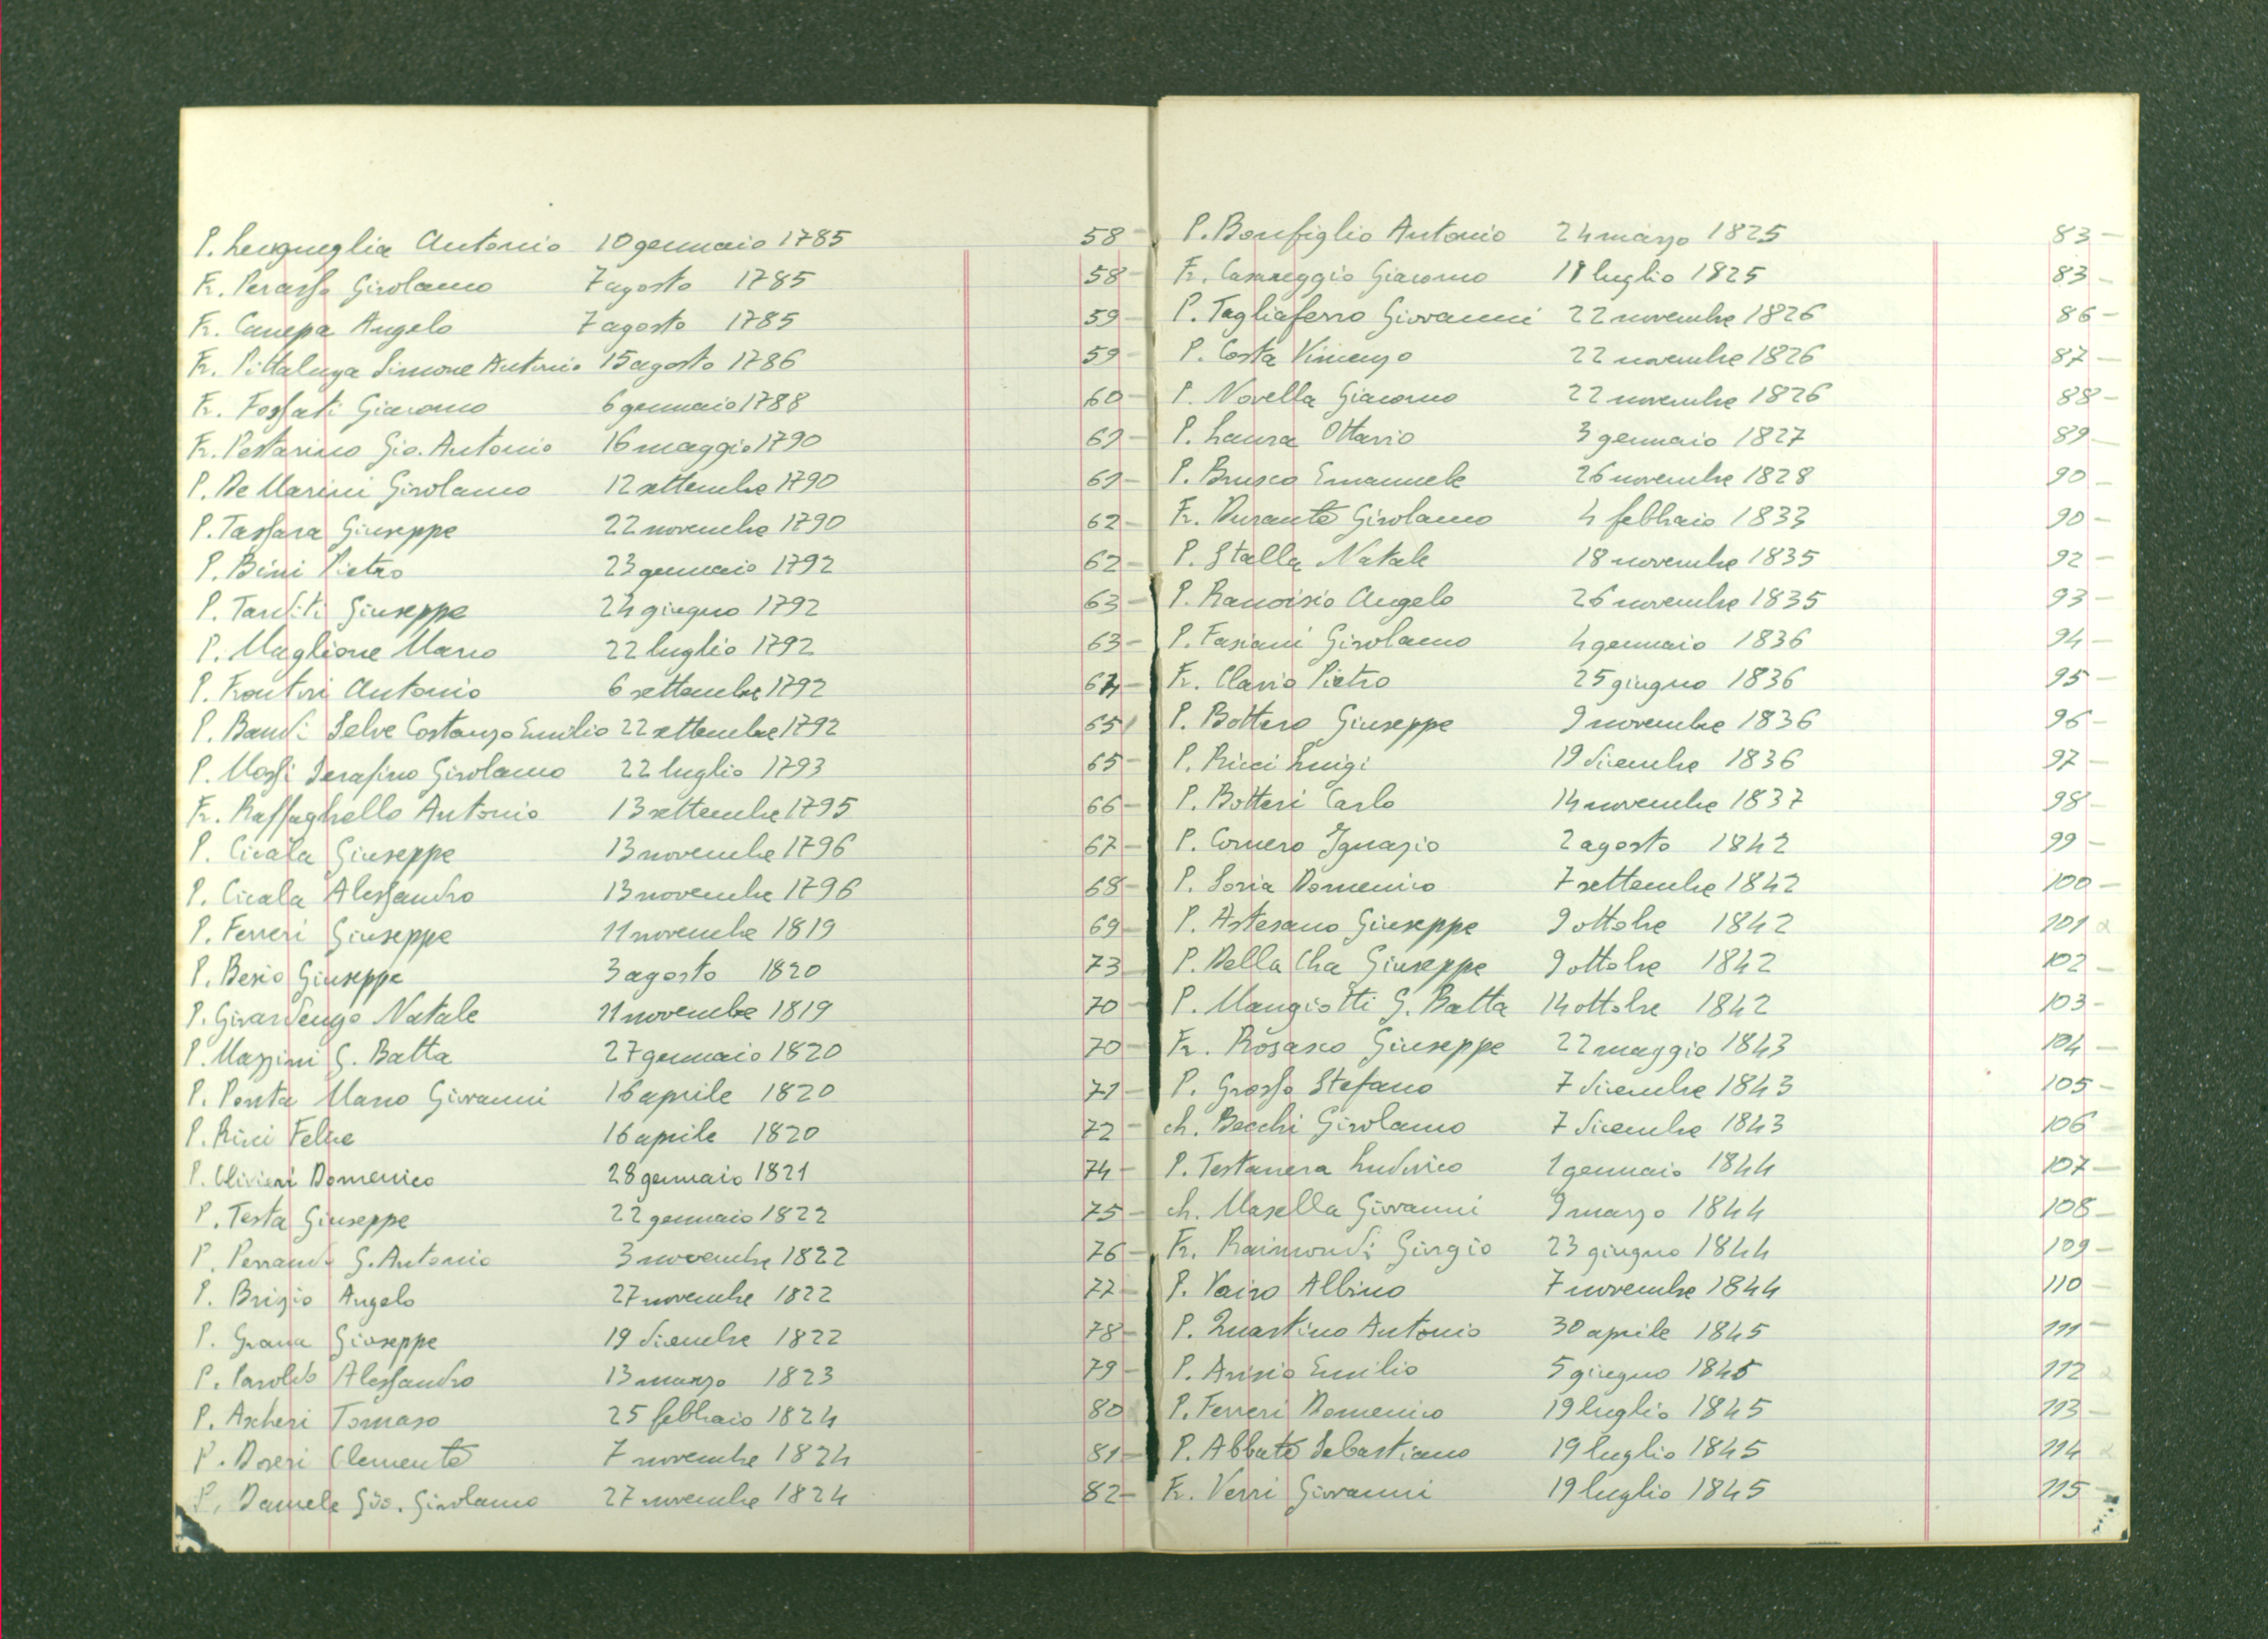 P. Lengueglia Antonio 10 gennaio 1785 58
Fr. Perasso Girolamo 7 agosto 1785 58
Fr. Canepa Angelo 7 agosto 1785 59
Fr. Pittaluga Simone Antonio 15 agosto 1786 59
Fr. Fossati Giacomo 6 gennaio 1788 60
Fr. Pestarino Gio. Antonio 16 maggio 1790 61
P. De Marini Girolamo 12 settembre 1790 61
P. Tassara Giuseppe 22 novembre 1790 62
P. Bini Pietro 23 gennaio 1792 62
P. Tarditi Giuseppe 24 giugno 1792 63
P. Maglione Marco 22 luglio 1792 63
P. Frontini Antonio 6 settembre 1792 64
P. Bandi Selve Costanzo Emilio 22 settembre 1792 65
P. Mossi Serafino Girolamo 22 luglio 1793 65
Fr. Raffaghello Antonio 13 settembre 1795 66
P. Cicala Giuseppe 13 novembre 1796 67
P. Cicala Alessandro 13 novembre 1796 68
P. Ferreri Giuseppe 11 novembre 1819 69
P. Besio Giuseppe 3 agosto 1820 73
P. Girardengo Natale 11 novembre 1819 70
P. Mazzini G. Batta 27 gennaio 1820 70
P. Ponta Marco Giovanni 16 aprile 1820 71
P. Ricci Felice 16 aprile 1820 72
P. Olivieri Domenico 28 gennaio 1821 74
P. Testa Giuseppe 22 gennaio 1822 75
P. Ferrandi G. Antonio 3 novembre 1822 76
P. Brizio Angelo 27 novembre 1822 77
P. Grana Giuseppe 19 dicembre 1822 78
P. Paroldo Alessandro 13 marzo 1823 79
P. Ascheri Tomaso 25 febbraio 1824 80
P. Doreri Clemente 7 novembre 1824 81
P. Daniele Gio. Girolamo 27 novembre 1824 82
P. Bonfiglio Antonio 24 marzo 1825 83
Fr. Casareggio Giacomo 18 luglio 1825 83
P. Tagliaferro Giovanni 22 novembre 1826 86
P. Costa Vincenzo 22 novembre 1826 87
P. Novella Giacomo 22 novembre 1826 88
P. Laura Ottavio 3 gennaio 1827 89
P. Brusco Emanuele 26 novembre 1828 90
Fr. Durante Girolamo 4 febbraio 1833 90
P. Stalla Natale 18 novembre 1835 92
P. Rancisio Angelo 26 novembre 1835 93
P. Fasiani Girolamo 4 gennaio 1836 94
Fr. Clavio Pietro 25 giugno 1836 95
P. Bottero Giuseppe 9 novembre 1836 96
P. Ricci Luigi 19 dicembre 1836 97
P. Botteri Carlo 14 novembre 1837 98
P. Cornero Ignazio 2 agosto 1842 99
P. Soria Domenico 7 settembre 1842 100
P. Astesano Giuseppe 9 ottobre 1842 101
P. Della Cha Giuseppe 9 ottobre 1842 102
P. Mangiotti G. Batta 14 ottobre 1842 103
Fr. Rosasco Giuseppe 22 maggio 1843 104
P. Grosso Stefano 7 dicembre 1843 105
ch. Becchi Girolamo 7 dicembre 1843 106
P. Testanera Ludovico 1 gennaio 1844 107
ch. Masella Giovanni 9 marzo 1844 108
Fr. Raimondi Giorgio 23 giugno 1844 109
P. Vairo Albino 7 novembre 1844 110
P. Quartino Antonio 30 aprile 1845 111
P. Arisio Emilio 5 giugno 1845 112
P. Ferreri Domenico 19 luglio 1845 113
P. Abbate Sebastiano 19 luglio 1845 114
Fr. Verri Giovanni 19 luglio 1845 115